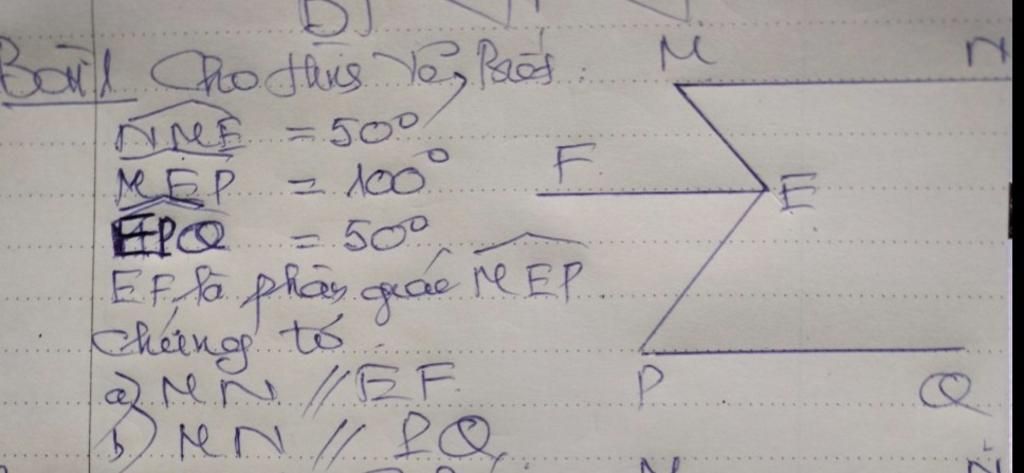 D)
Bài 1 Cho hình vẽ, Biết:
M N
NME = 50°
F
MEP = 100°
E
EPQ = 50°
EF là phân giác MEP
Chứng tỏ
a) MN // EF
P Q
b) MN // PQ